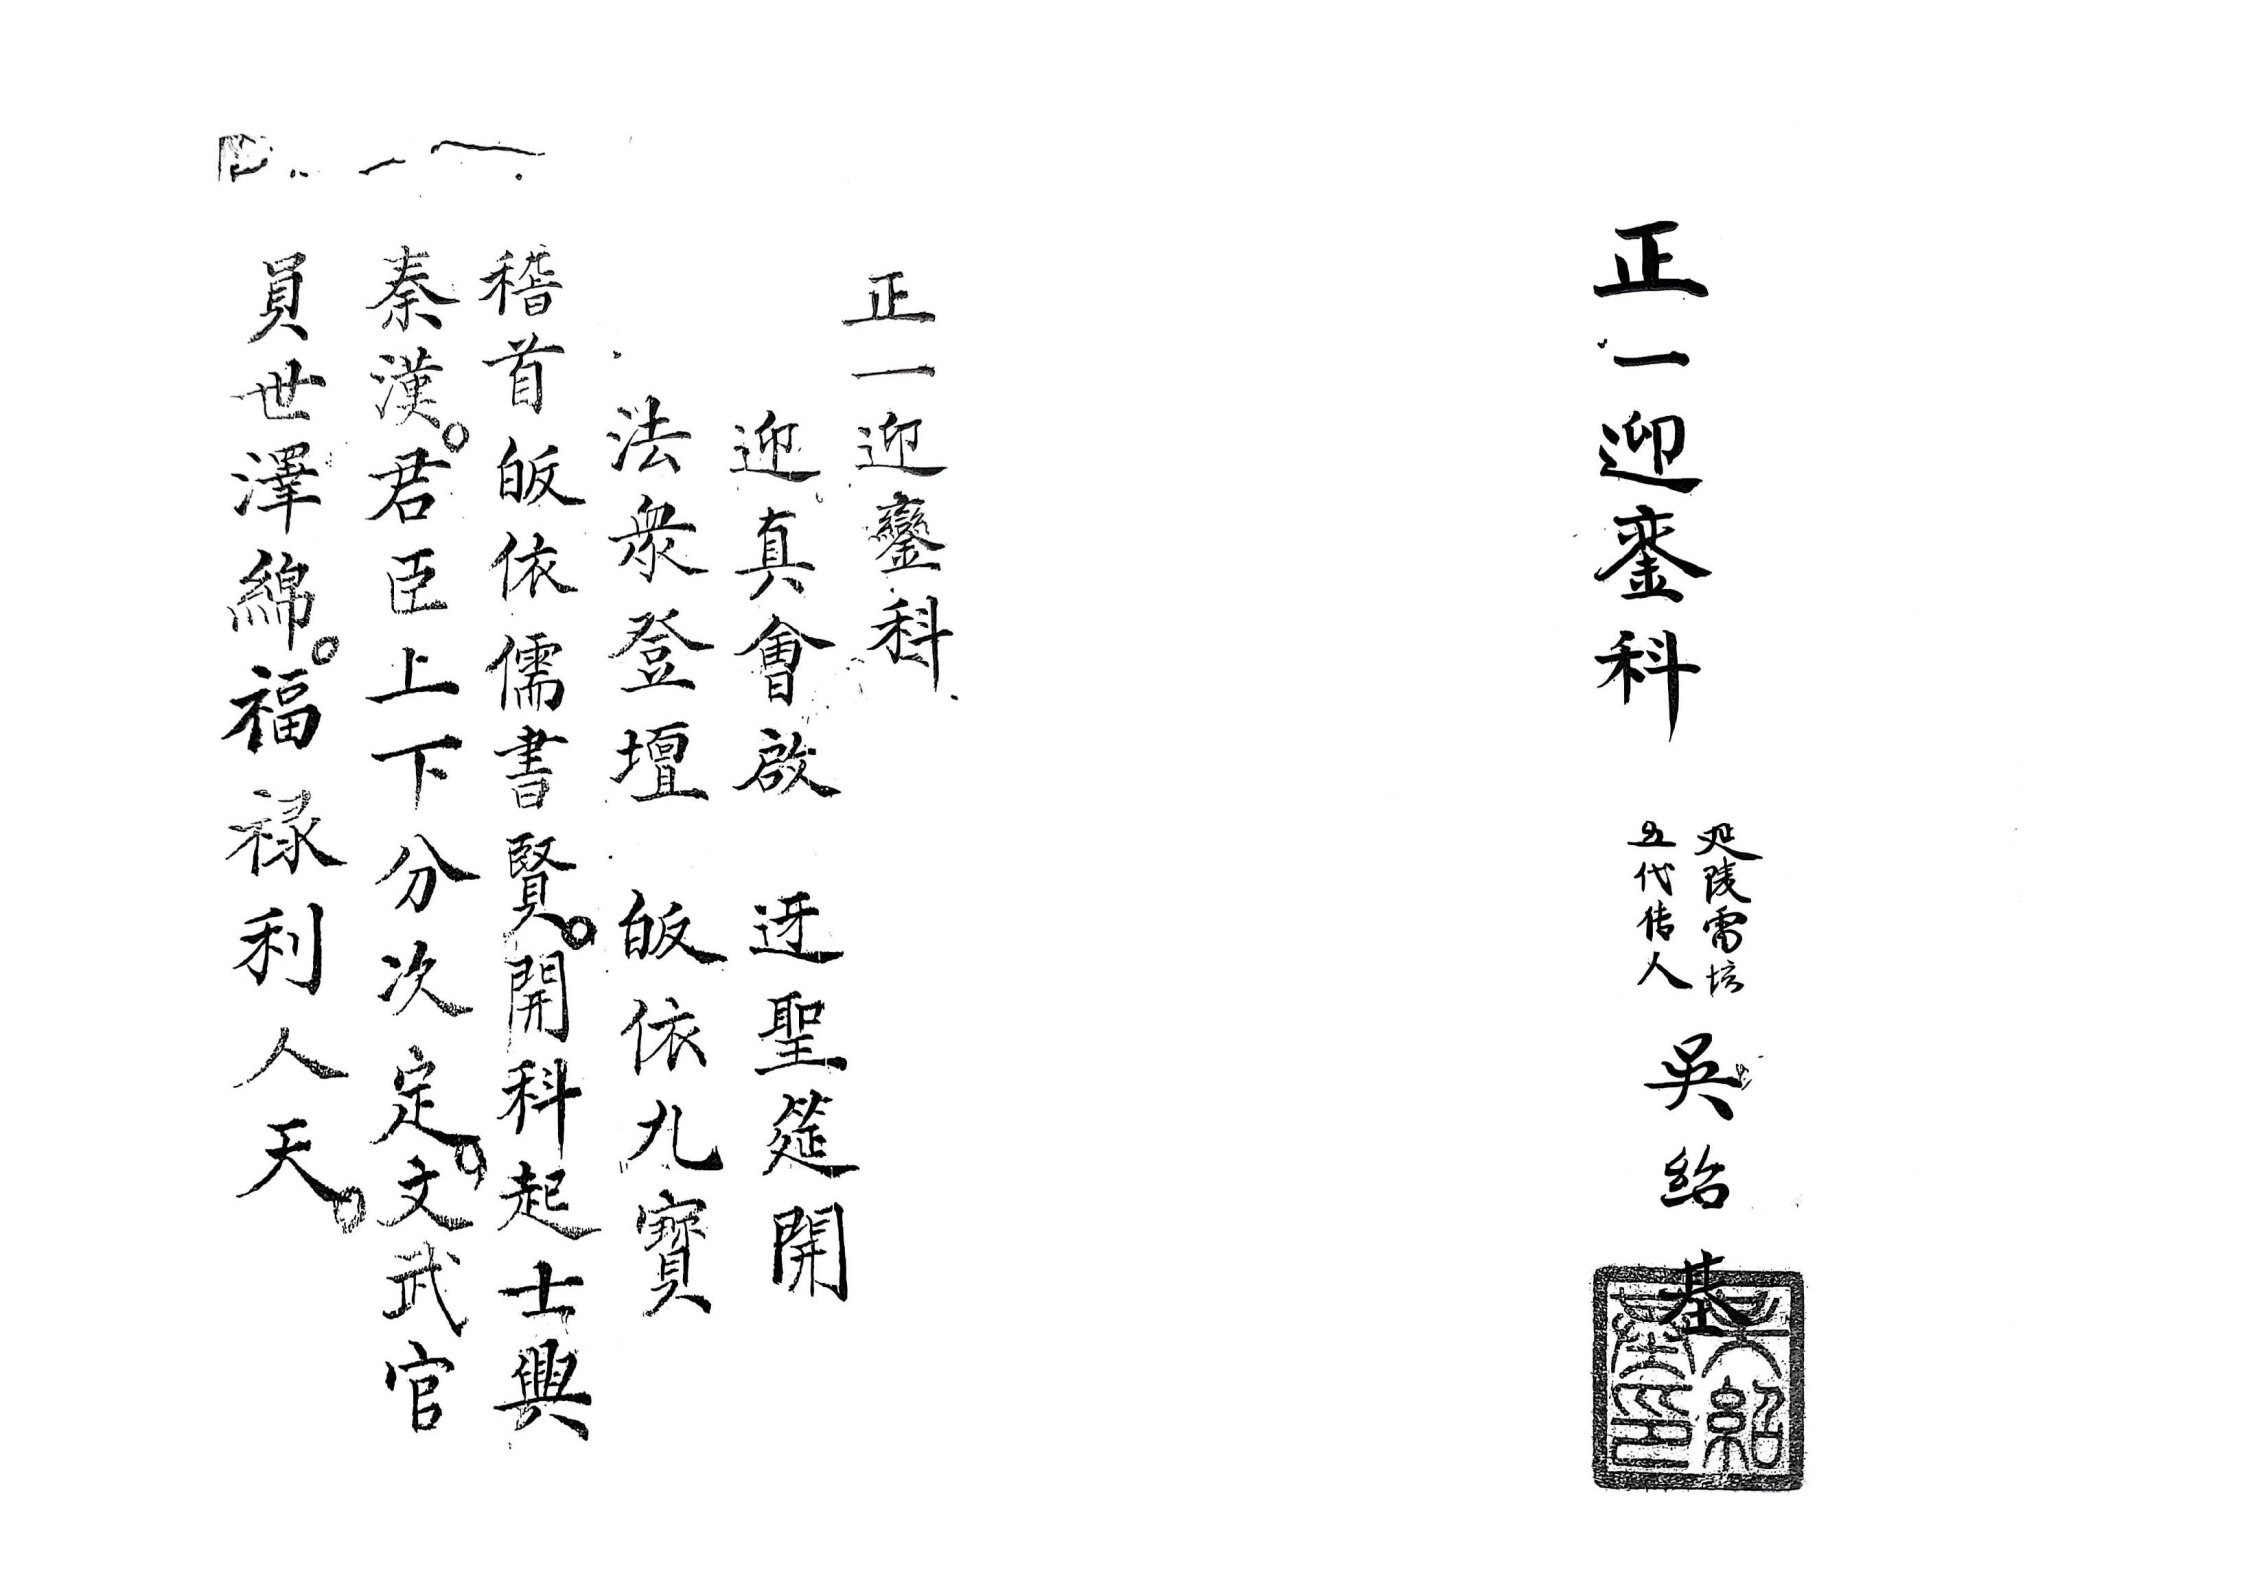 正一迎銮科
延陵雷坛
五代传人
吳紹基
吳紹
基印
正一迎鑾科
迎真會啟 迓聖筵開
法衆登壇 皈依九寳
稽首皈依儒書賢。開科起士興
秦漢。君臣上下分次定。文武官
員世澤綿。福祿利人天。